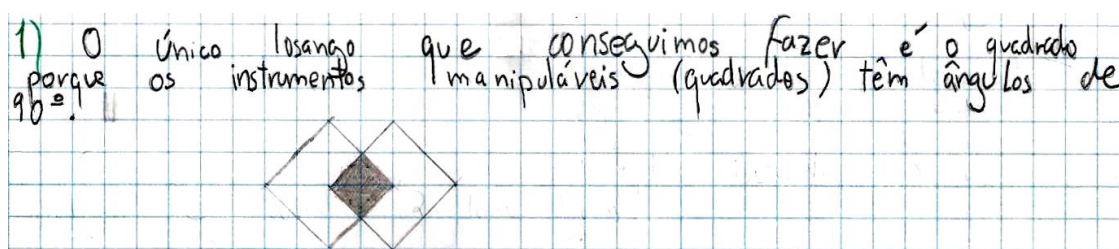 1) O único losango que conseguimos fazer é o quadrado
porque os instrumentos manipuláveis (quadrados) têm ângulos de
90º.